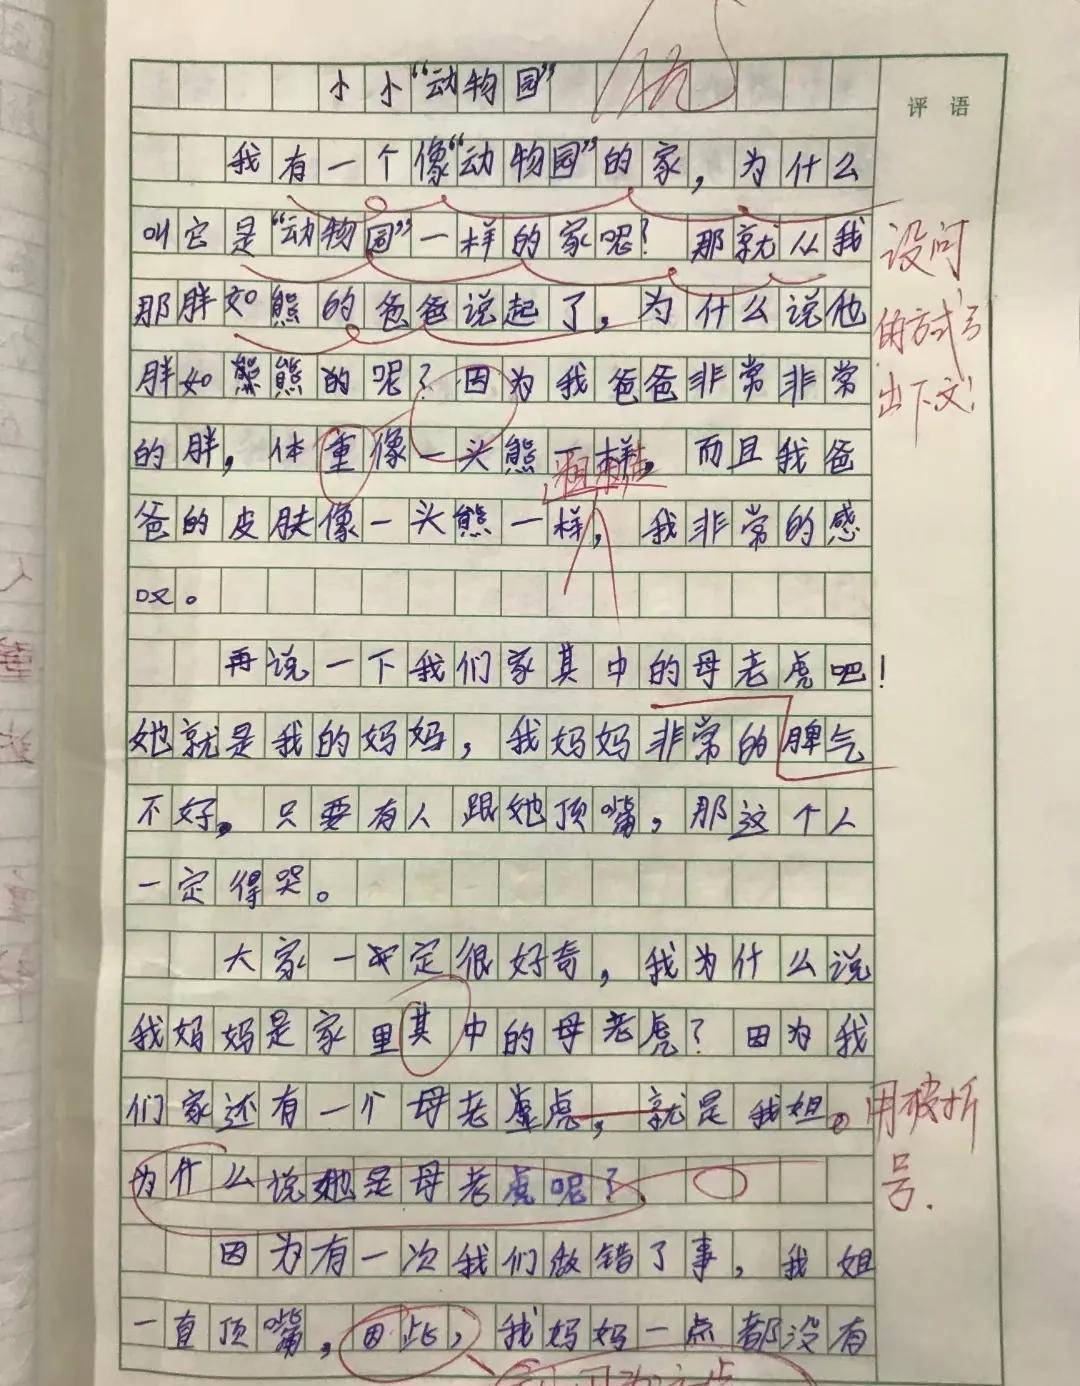 小小“动物园”
优
评语
我有一个像“动物园”的家，为什么
叫它是“动物园”一样的家呢？那就从我
那胖如熊的爸爸说起了，为什么说他
胖如熊熊的呢？因为我爸爸非常非常
的胖，体重像一头熊一样，而且我爸
粗糙
爸的皮肤像一头熊一样，我非常的感
叹。
再说一下我们家其中的母老虎吧！
她就是我的妈妈，我妈妈非常的脾气
不好，只要有人跟她顶嘴，那这个人
一定得哭。
大家一定很好奇，我为什么说
我妈妈是家里其中的母老虎？因为我
们家还有一个母老虎，就是我姐。
为什么说她是母老虎呢？
因为有一次我们做错了事，我姐
一直顶嘴，因此，我妈妈一点都没有
设问
的方式引
出下文！
用破折
号.